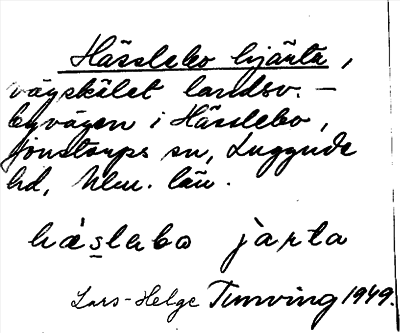 Hässlebo hjärta,
vägskälet landsv. –
byvägen i Hässlebo,
Jonstorps sn, Luggude
hd, Mlm. län.
hæ̀slebo jàrta
Lars-Helge Tunving 1949.